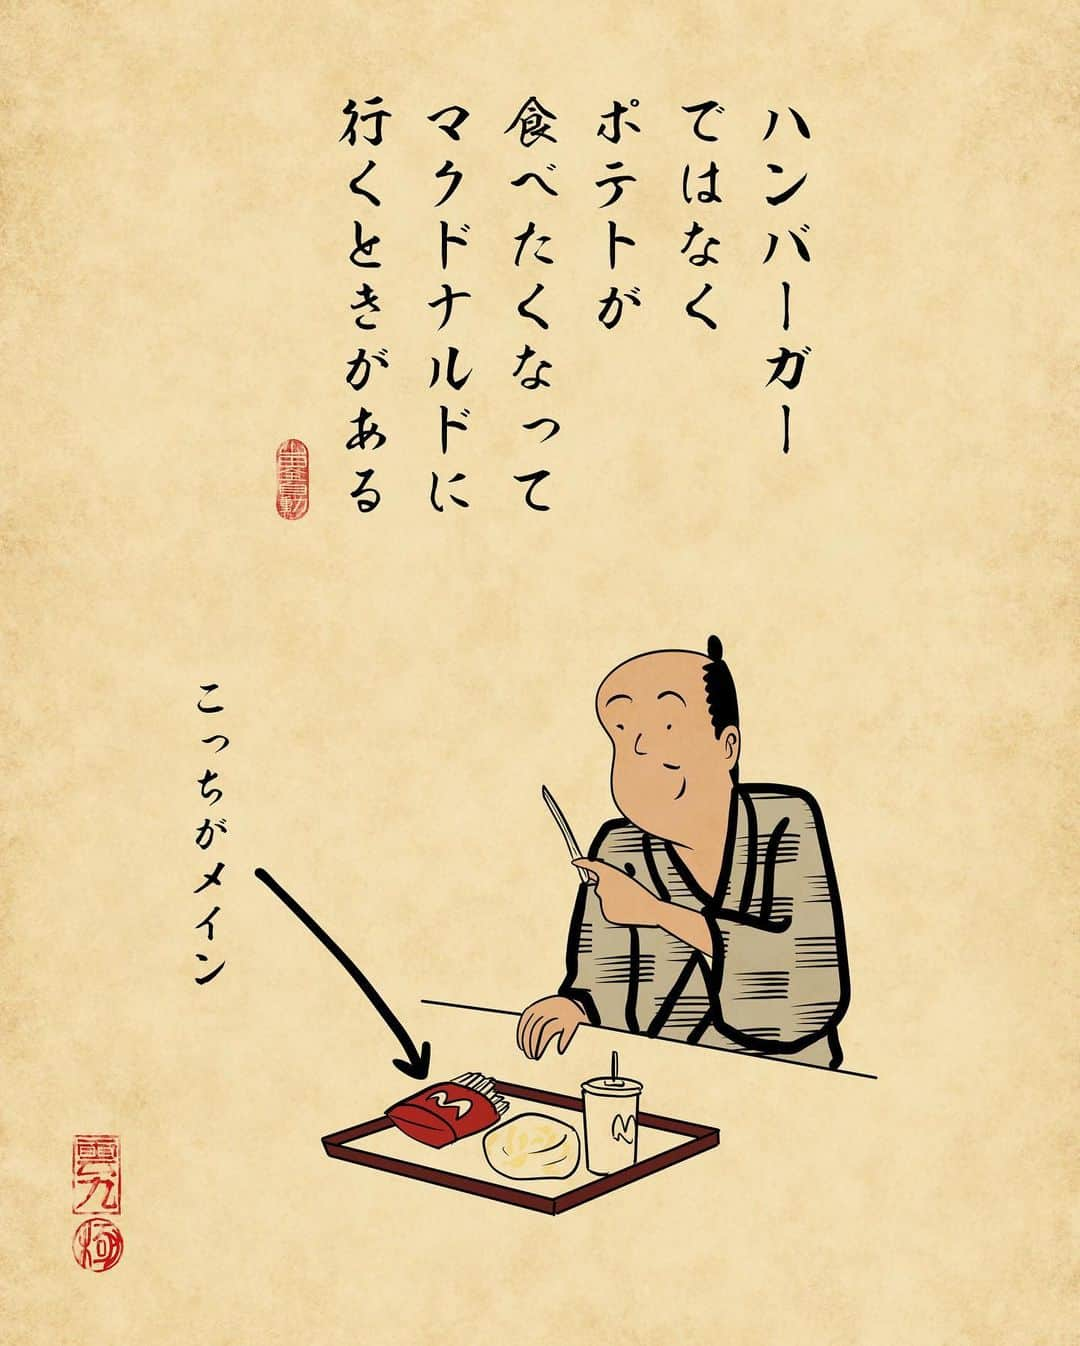 ハンバーガー
ではなく
ポテトが
食べたくなって
マクドナルドに
行くときがある
こっちがメイン